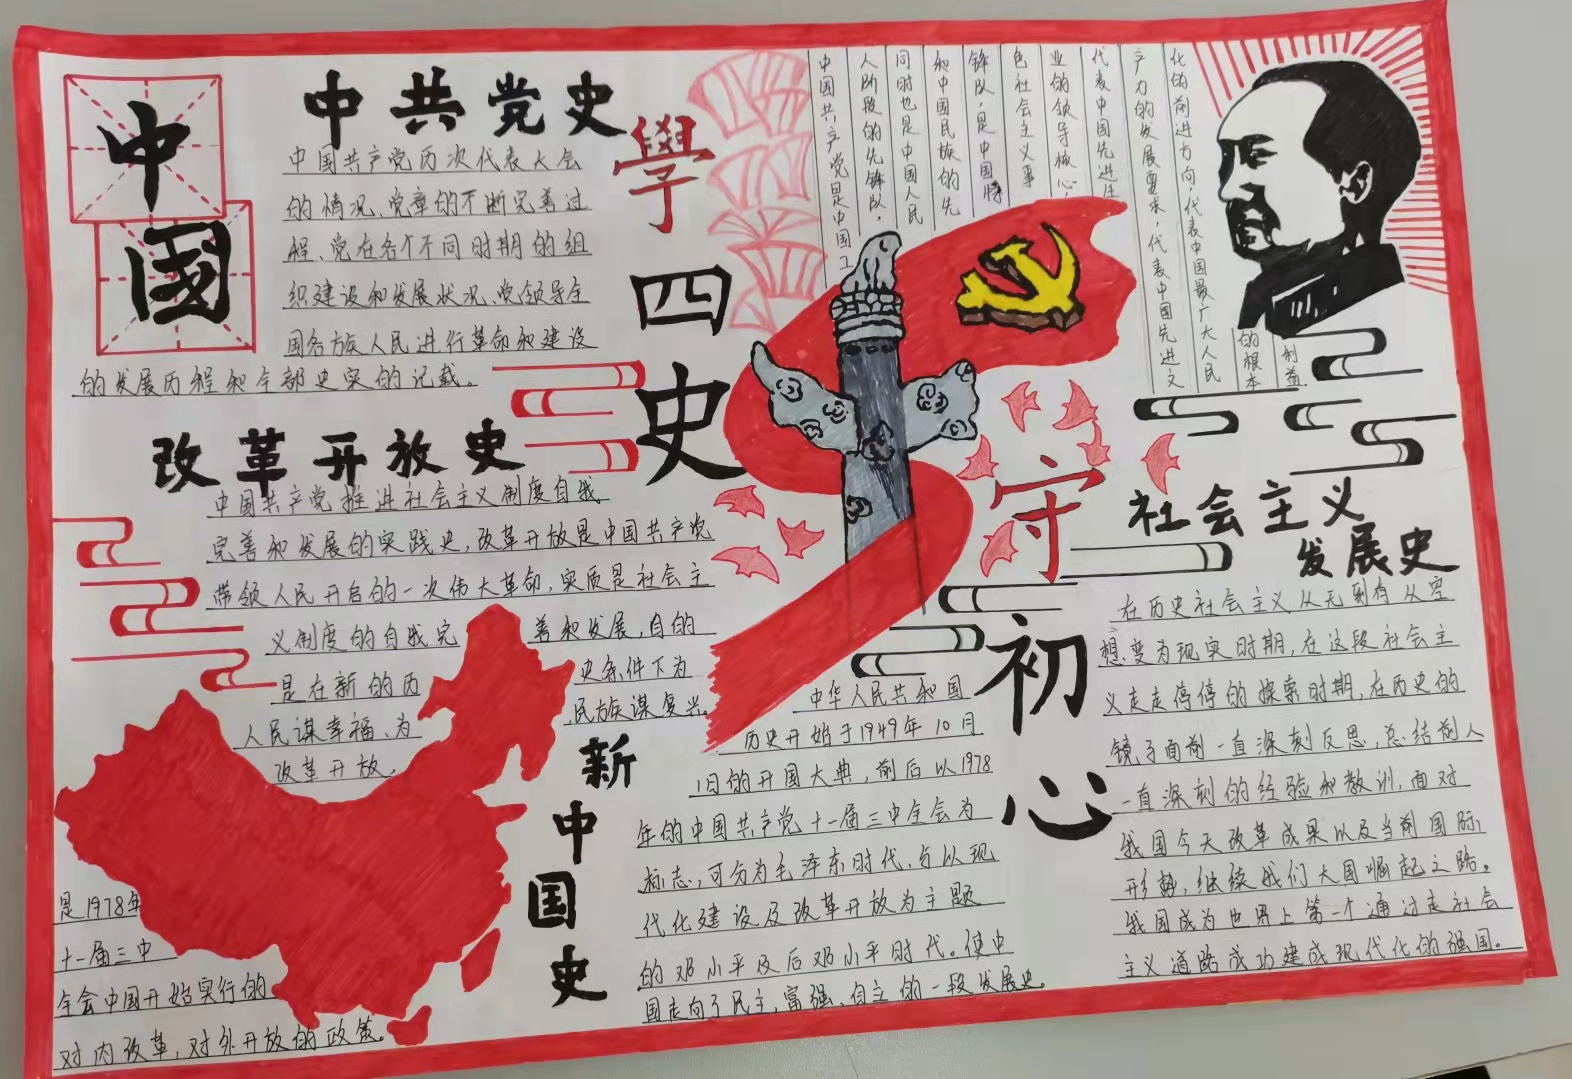 中
国
中共党史
中国共产党历次代表大会
的情况、党章的不断完善过
程、党在各个不同时期的组
织建设和发展状况、党领导全
国各方族人民进行革命和建设
的发展历程和全部史实的记载。
學
四
史
守
初
心
中国共产党是中国工
人阶段的先锋队，
同时也是中国人民
和中国民族的先
锋队，是中国特
色社会主义事
业的领导核心，
代表中国先进生
产力的发展要求，代表中国先进文
化的前进方向，代表中国最广大人民
的根本
利益
改革开放史
中国共产党推进社会主义制度自我
完善和发展的实践史，改革开放是中国共产党
带领人民开启的一次伟大革命，实质是社会主
义制度的自我完 善和发展，目的
是在新的历 史条件下为
人民谋幸福、为 民族谋复兴。
改革开放，
是1978年
十一届三中
全会中国开始实行的
对内改革，对外开放的政策。
新
中
国
史
中华人民共和国
历史开始于1949年10月
1日的开国大典，前后以1978
年的中国共产党十一届三中全会为
标志，可分为毛泽东时代，与以现
代化建设及改革开放为主题
的邓小平及后邓小平时代。使中
国走向了民主，富强、自立的一段发展史。
社会主义
发展史
在历史社会主义从无到有从空
想变为现实时期，在这段社会主
义走走停停的探索时期，在历史的
镜子面前一直深刻反思，总结前人
一直深刻的经验和教训，面对
我国今天改革成果以及当前国际
形势，继续我们大国崛起之路。
我国成为世界上第一个通过走社会
主义道路成功建成现代化的强国。